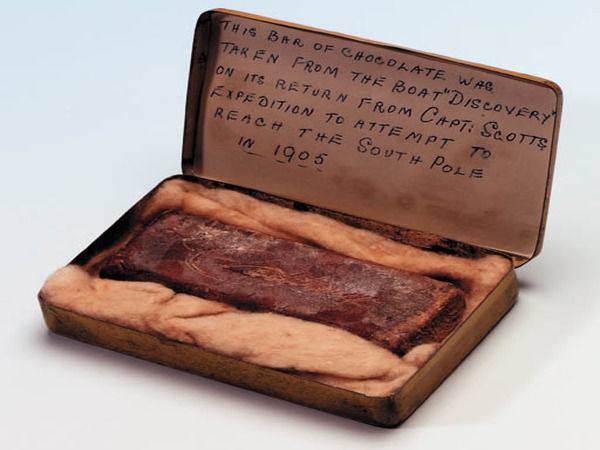 THIS BAR OF CHOCOLATE WAS
TAKEN FROM THE BOAT "DISCOVERY"
ON ITS RETURN FROM CAPT: SCOTTS
EXPEDITION TO ATTEMPT TO
REACH THE SOUTH POLE
IN 1905